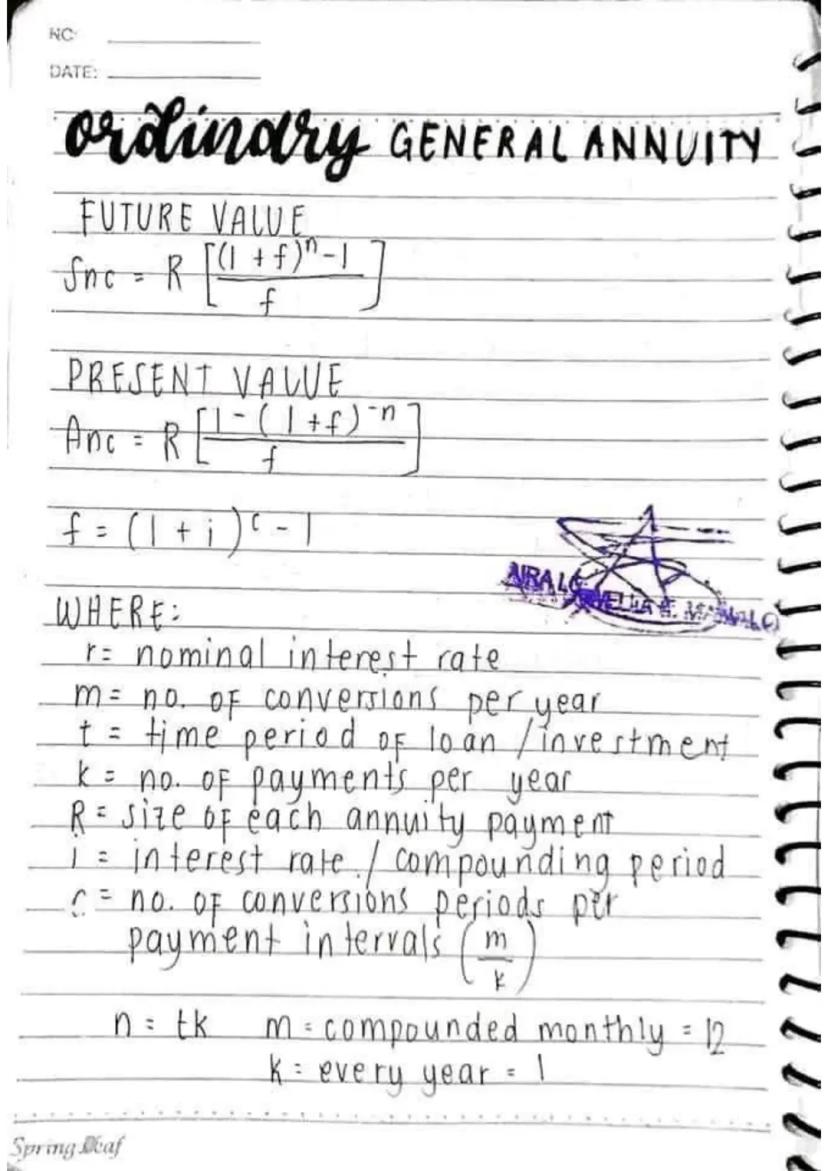 NO:
DATE:
ordinary GENERAL ANNUITY
FUTURE VALUE
Snc = R [(1 + f)^n - 1 / f]
PRESENT VALUE
Anc = R [1 - (1 + f)^-n / f]
f = (1 + i)^c - 1
WHERE:
r = nominal interest rate
m = no. of conversions per year
t = time period of loan / investment
k = no. of payments per year
R = size of each annuity payment
i = interest rate / compounding period
c = no. of conversions periods per
payment intervals (m / k)
n = tk m = compounded monthly = 12
k = every year = 1
Spring Leaf